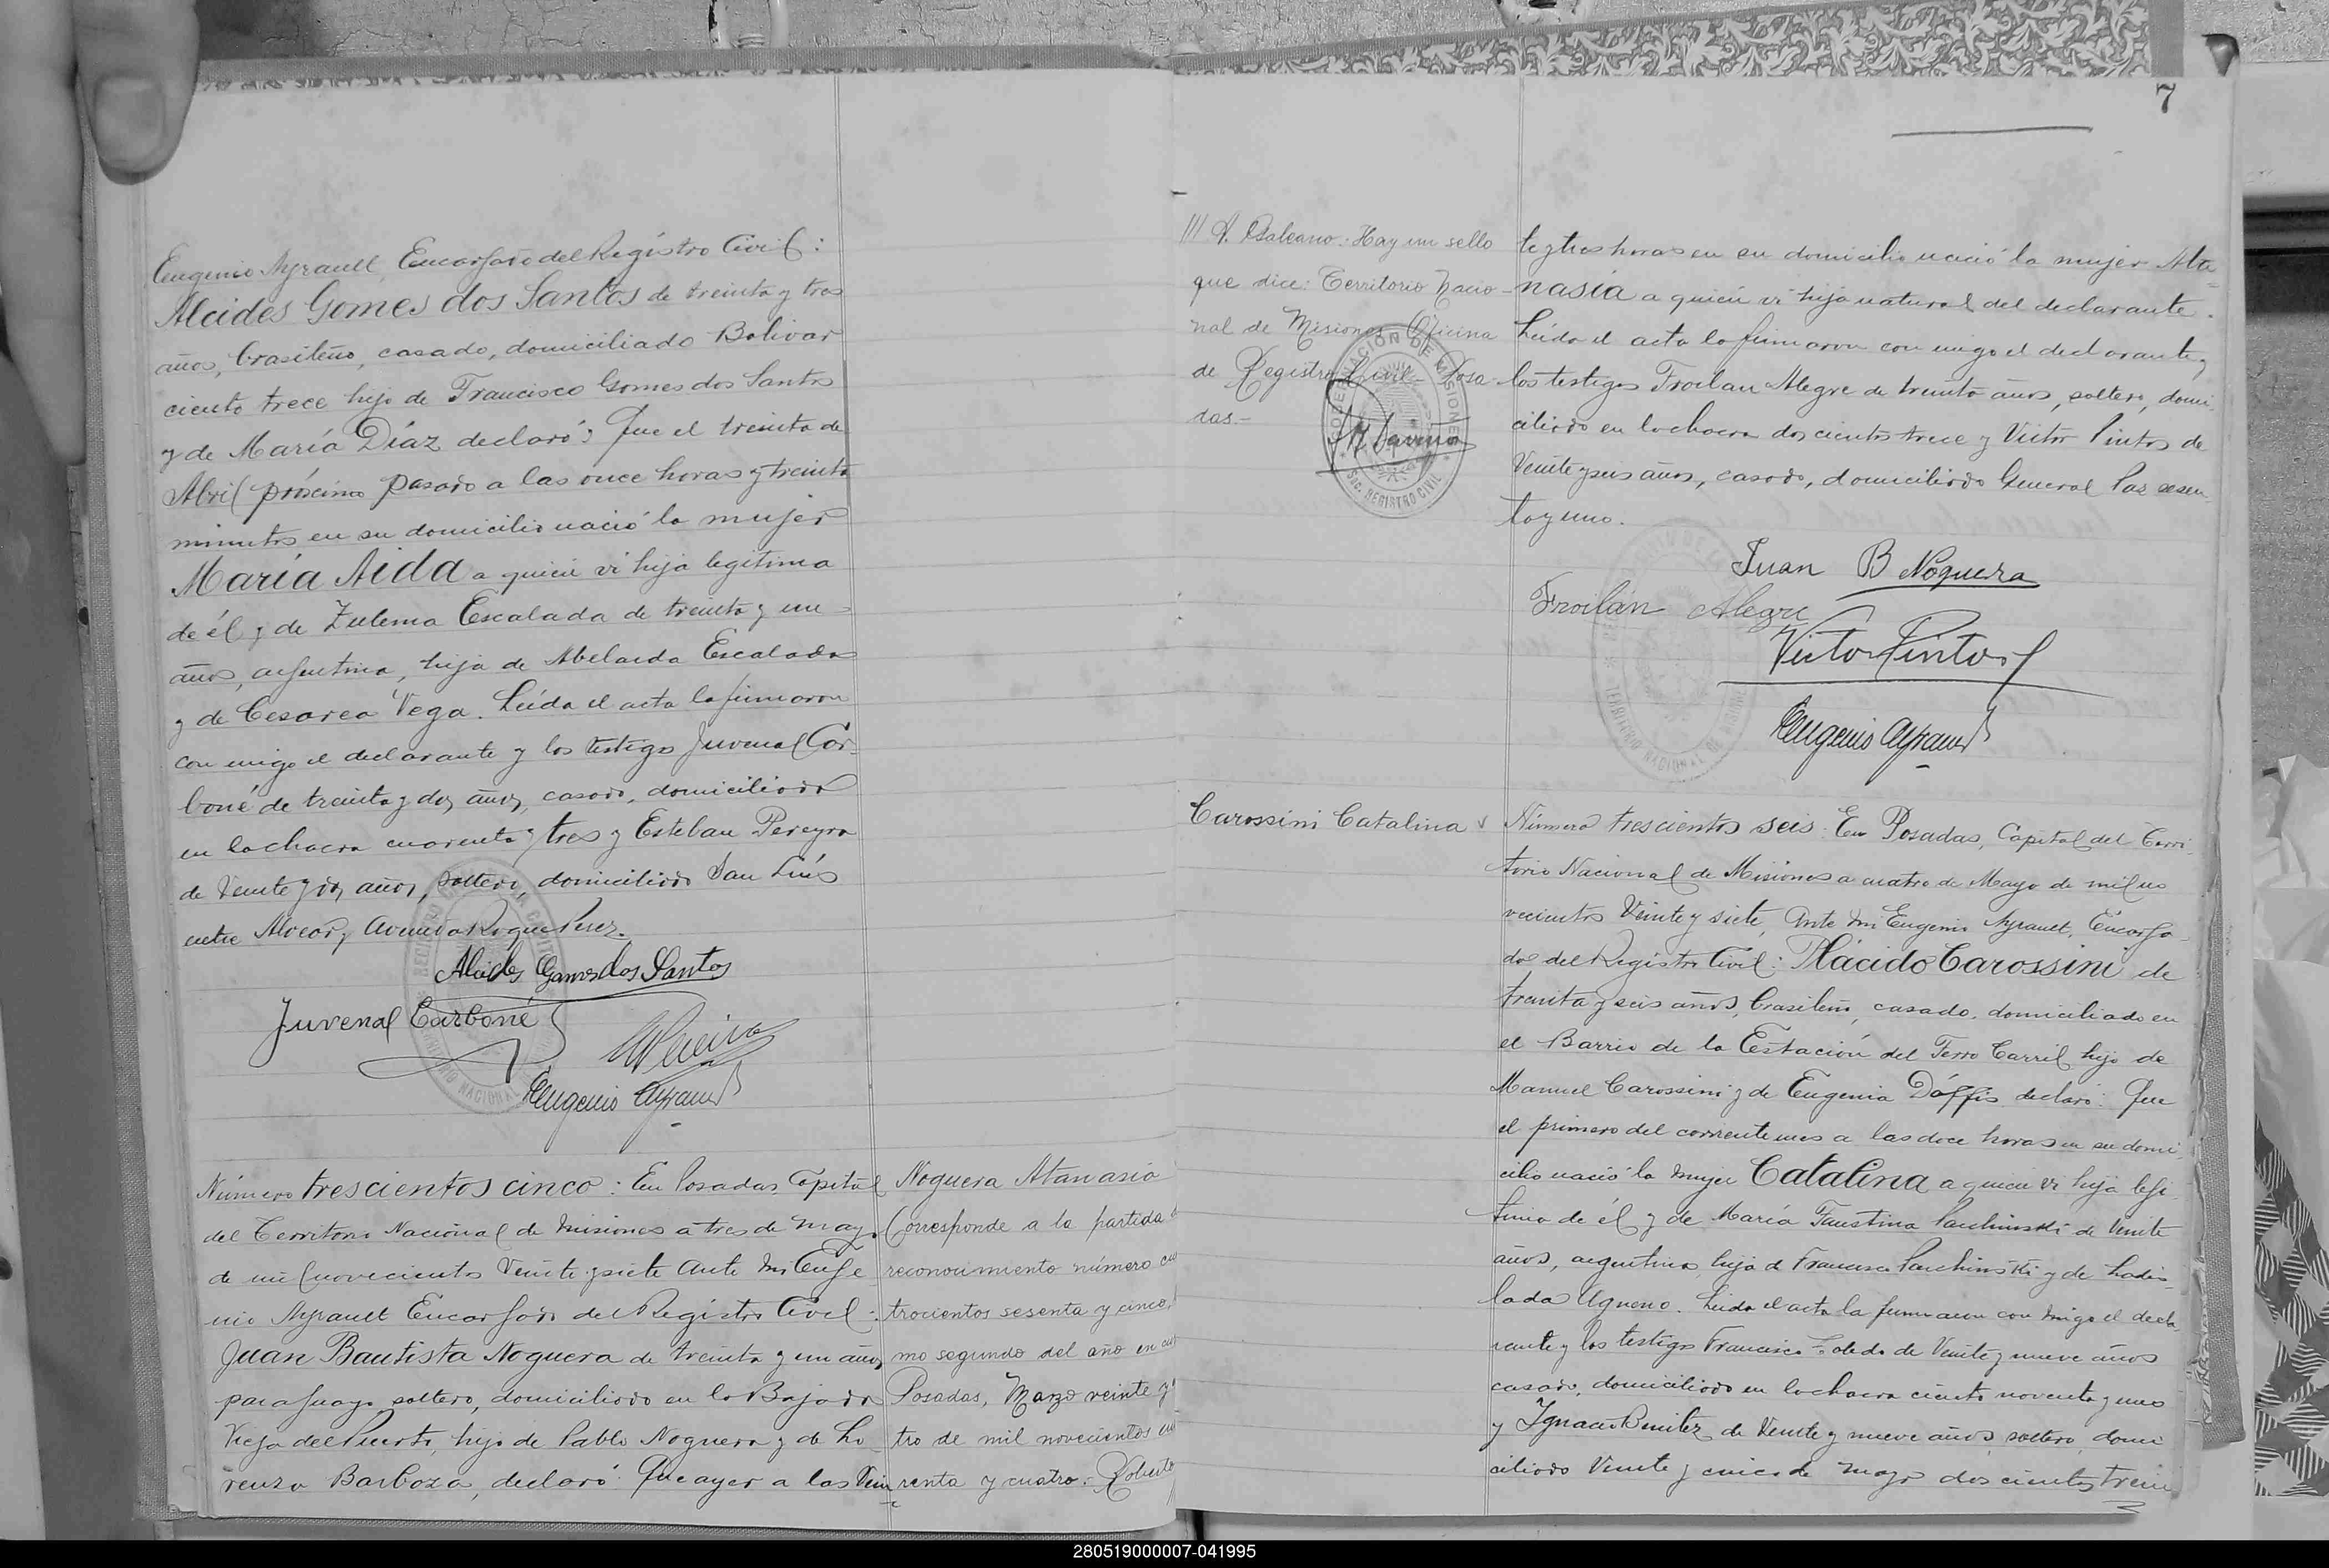 Eugenio Ayrault, Encargado del Registro Civil:
Alcides Gomes dos Santos de treinta y tres
años, brasileño, casado, domiciliado Bolivar
ciento trece hijo de Francisco Gomes dos Santos
y de María Díaz declaró: Que el treinta de
Abril próximo pasado a las once horas y treinta
minutos en su domicilio nació la mujer
María Aida a quien vi hija legítima
de él y de Zulema Escalada de treinta y un
años, argentina, hija de Abelarda Escalada
y de Cesarea Vega. Leída el acta la firmaron
con migo el declarante y los testigos Juvenal Car-
boné de treinta y dos años, casado, domiciliado
en la chacra cuarenta y tres y Esteban Pereyra
de Veinte y dos años, soltero, domiciliado San Luís
entre Alvear y Avenida Roque Perez.
Alcides Gomes dos Santos
Juvenal Carboné
Eugenio Ayrault
Número trescientos cinco: En Posadas, Capital
del Territorio Nacional de Misiones a tres de Mayo
de mil novecientos Veinte y siete Ante Mi Euge
nio Ayrault Encargado del Registro Civil:
Juan Bautista Noguera de treinta y un años
paraguayo, soltero, domiciliado en la Bajada
Vieja del Puerto, hijo de Pablo Noguera y de Lo
renza Barboza, declaró: Que ayer a las Vein
Noguera Atanasia
Corresponde a la partida
reconocimiento número cua
trocientos sesenta y cinco,
mo segundo del año en
Posadas, Marzo veinte y
tro de mil novecientos
renta y cuatro. Roberto
7
/// A. Balcano. Hay un sello
que dice: Territorio Nacio-
nal de Misiones Oficina
de Registro Civil - Posa-
das.-
GOBERNACIÓN DE MISIONES
SEC. REGISTRO CIVIL
te y tres horas en su domicilio nació la mujer Ata
nasia a quien vi hija natural del declarante.
Leída el acta la firmaron con migo el declarante y
los testigos Froilan Alegre de treinta años, soltero, domi
ciliado en la chacra doscientos trece y Victor Pintos de
Veinte y seis años, casado, domiciliado General Paz sesen
ta y uno.
Juan B Noguera
Froilán Alegre
Victor Pintos
Eugenio Ayrault
Carossini Catalina
Número trescientos seis: En Posadas, Capital del Terri
torio Nacional de Misiones a cuatro de Mayo de mil no
vecientos Veinte y siete, Ante Mi Eugenio Ayrault, Encarga
do del Registro Civil: Plácido Carossini de
treinta y seis años, brasileño, casado, domiciliado en
el Barrio de la Estación del Ferro Carril hijo de
Manuel Carossini y de Eugenia Dáffis declaró: Que
el primero del corriente mes a las doce horas en su domi
cilio nació la mujer Catalina a quien vi hija legi
tima de él y de María Faustina Parchinski de Veinte
años, argentina, hija de Francisco Parchinski y de Ladis
lada Ugneno. Leída el acta la firmaron con migo el decla
rante y los testigos Francisco Toledo de Veinte y nueve años
casado, domiciliado en la chacra ciento noventa y uno
y Ignacio Benitez de Veinte y nueve años, soltero, domi
ciliado Veinte y cinco de Mayo doscientos trein
280519000007-041995